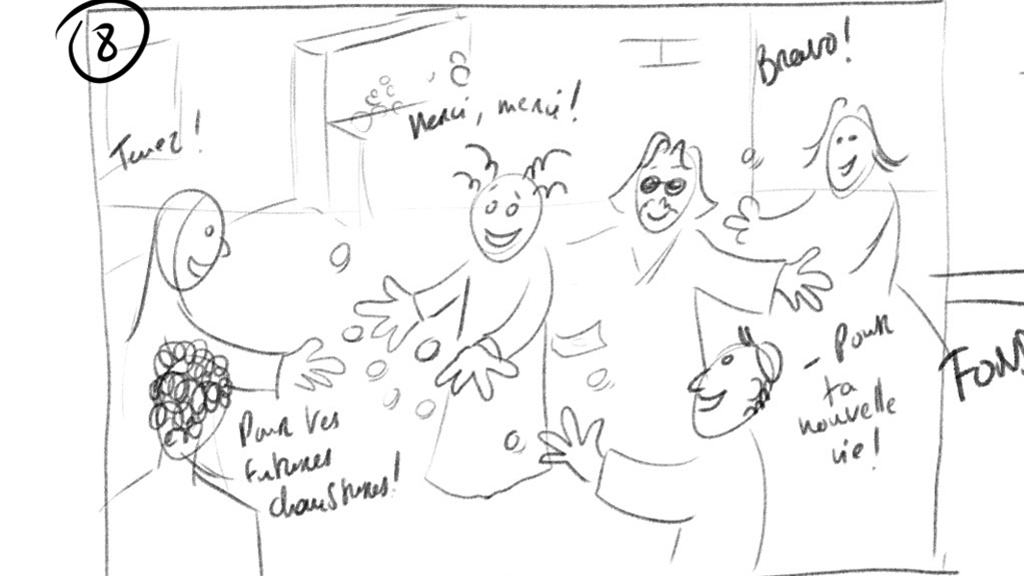 8
Tenez!
Merci, merci!
Bravo!
Pour tes
futures
chaussures!
- Pour
ta
nouvelle
vie!
FOND